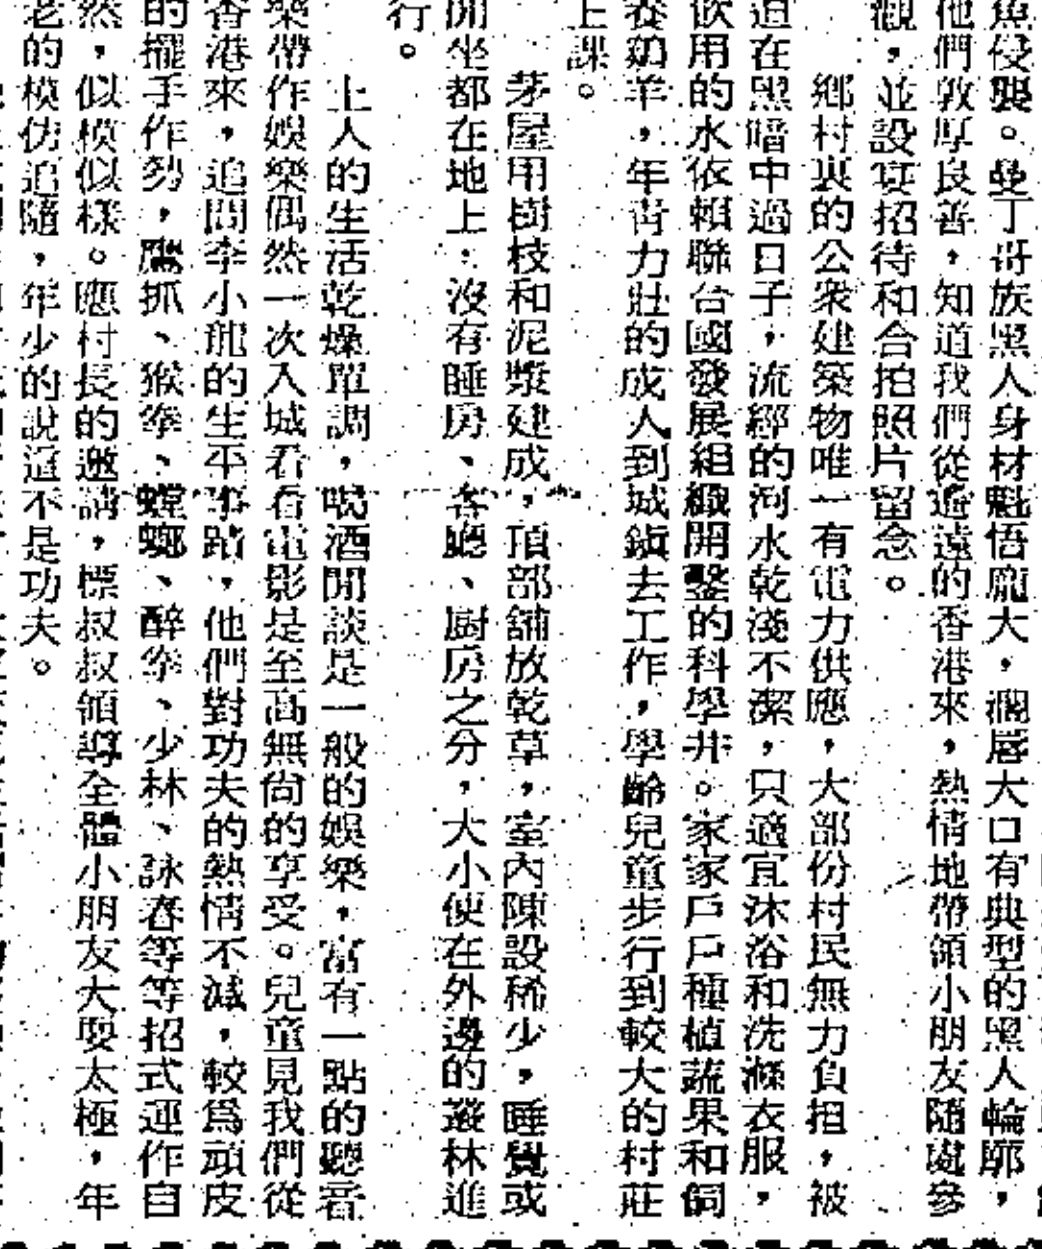 魚侵襲。曼丁哥族黑人身材魁悟龐大,濶唇大口有典型的黑人輪廓,
他們敦厚良善,知道我們從遙遠的香港來,熱情地帶領小朋友隨處參
觀,並設宴招待和合拍照片留念。
鄉村裏的公衆建築物唯一有電力供應,大部份村民無力負担,被
迫在黑暗中過日子,流經的河水乾淺不潔,只適宜沐浴和洗滌衣服,
飲用的水依賴聯合國發展組織開鑿的科學井。家家戶戶種植蔬果和飼
養奶羊,年青力壯的成人到城鎮去工作,學齡兒童步行到較大的村莊
上課。
茅屋用樹枝和泥漿建成,頂部舖放乾草,室內陳設稀少,睡覺或
閒坐都在地上,沒有睡房、客廳、厨房之分,大小便在外邊的叢林進
行。
土人的生活乾燥單調,喝酒閒談是一般的娛樂,富有一點的聽音
樂帶作娛樂偶然一次入城看看電影是至高無尚的享受。兒童見我們從
香港來,追問李小龍的生平事蹟,他們對功夫的熱情不減,較爲頑皮
的擺手作勢,鷹抓、猴拳、螳螂、醉拳、少林、詠春等等招式運作自
然,似模似樣。應村長的邀請,標叔叔領導全體小朋友大耍太極,年
老的模仿追隨,年少的說這不是功夫。